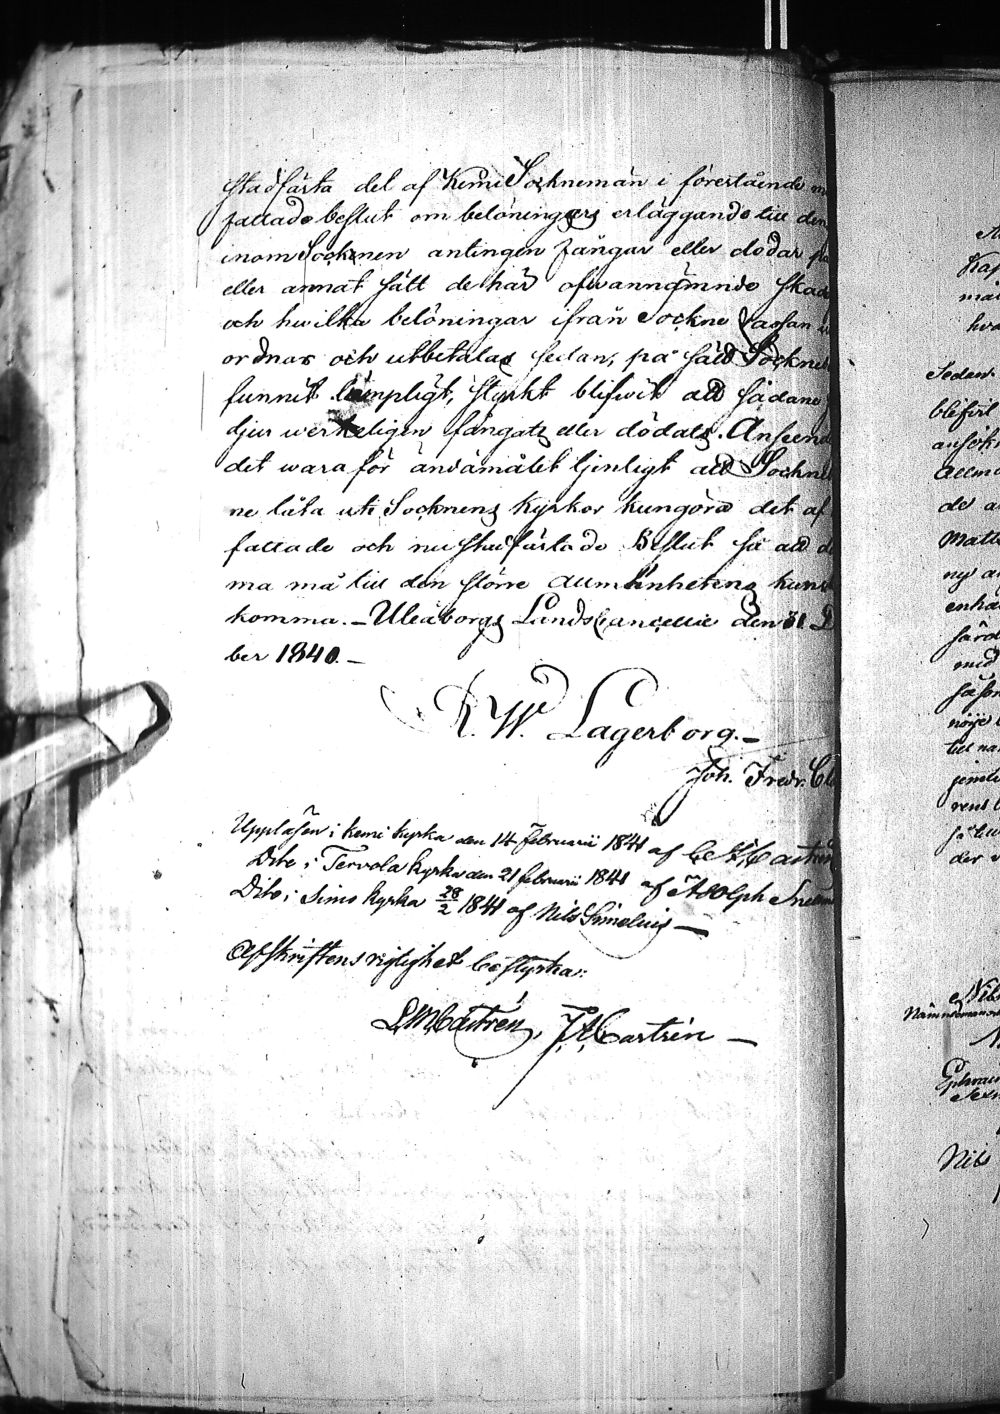 stadfästa det af Kemi Sockneman i förestående
fattade beslut om belöningars erläggande till den
inom Socknen antingen fångar eller dödar
eller annat sätt de här ofwannämnde skad
och hwilka belöningar ifrån Sockne Cassan
ordnas och utbetalas sedan, på sätt Sockne
funnit lämpligt, styrkt blifwit att sådane
djur werkeligen fångats eller dödats. Anseende
det wara för ändamålet tjenligt att Sockne
ne låta uti Socknens Kyrkor kungöra det af
fattade och nu stadfästade Beslut så att de
ma må till den större allmänhetens kun
komma. – Uleåborgs Landscancellie den 31 D
ber 1840. –
R. W. Lagerborg. –
Joh. Fredr. Cl
Uppläsen i Kemi kyrka den 14 Februarii 1841 af C. Castrén
Dito i Tervola kyrka den 21 februarii 1841 af Adolph Snellm
Dito i Simo kyrka 28/2 1841 af Nils Simelius –
Afskriftens riktighet bestyrka:
L M Castrén, J A Castrén –
Kaf
mån
hva
Sedan
blefwit
ansökn
Allmä
de a
Matts
ny a
enhä
särd
med
såson
nöije
till na
jemli
rens
så till
der
Nils
Nämndeman
Ephraim
Nils